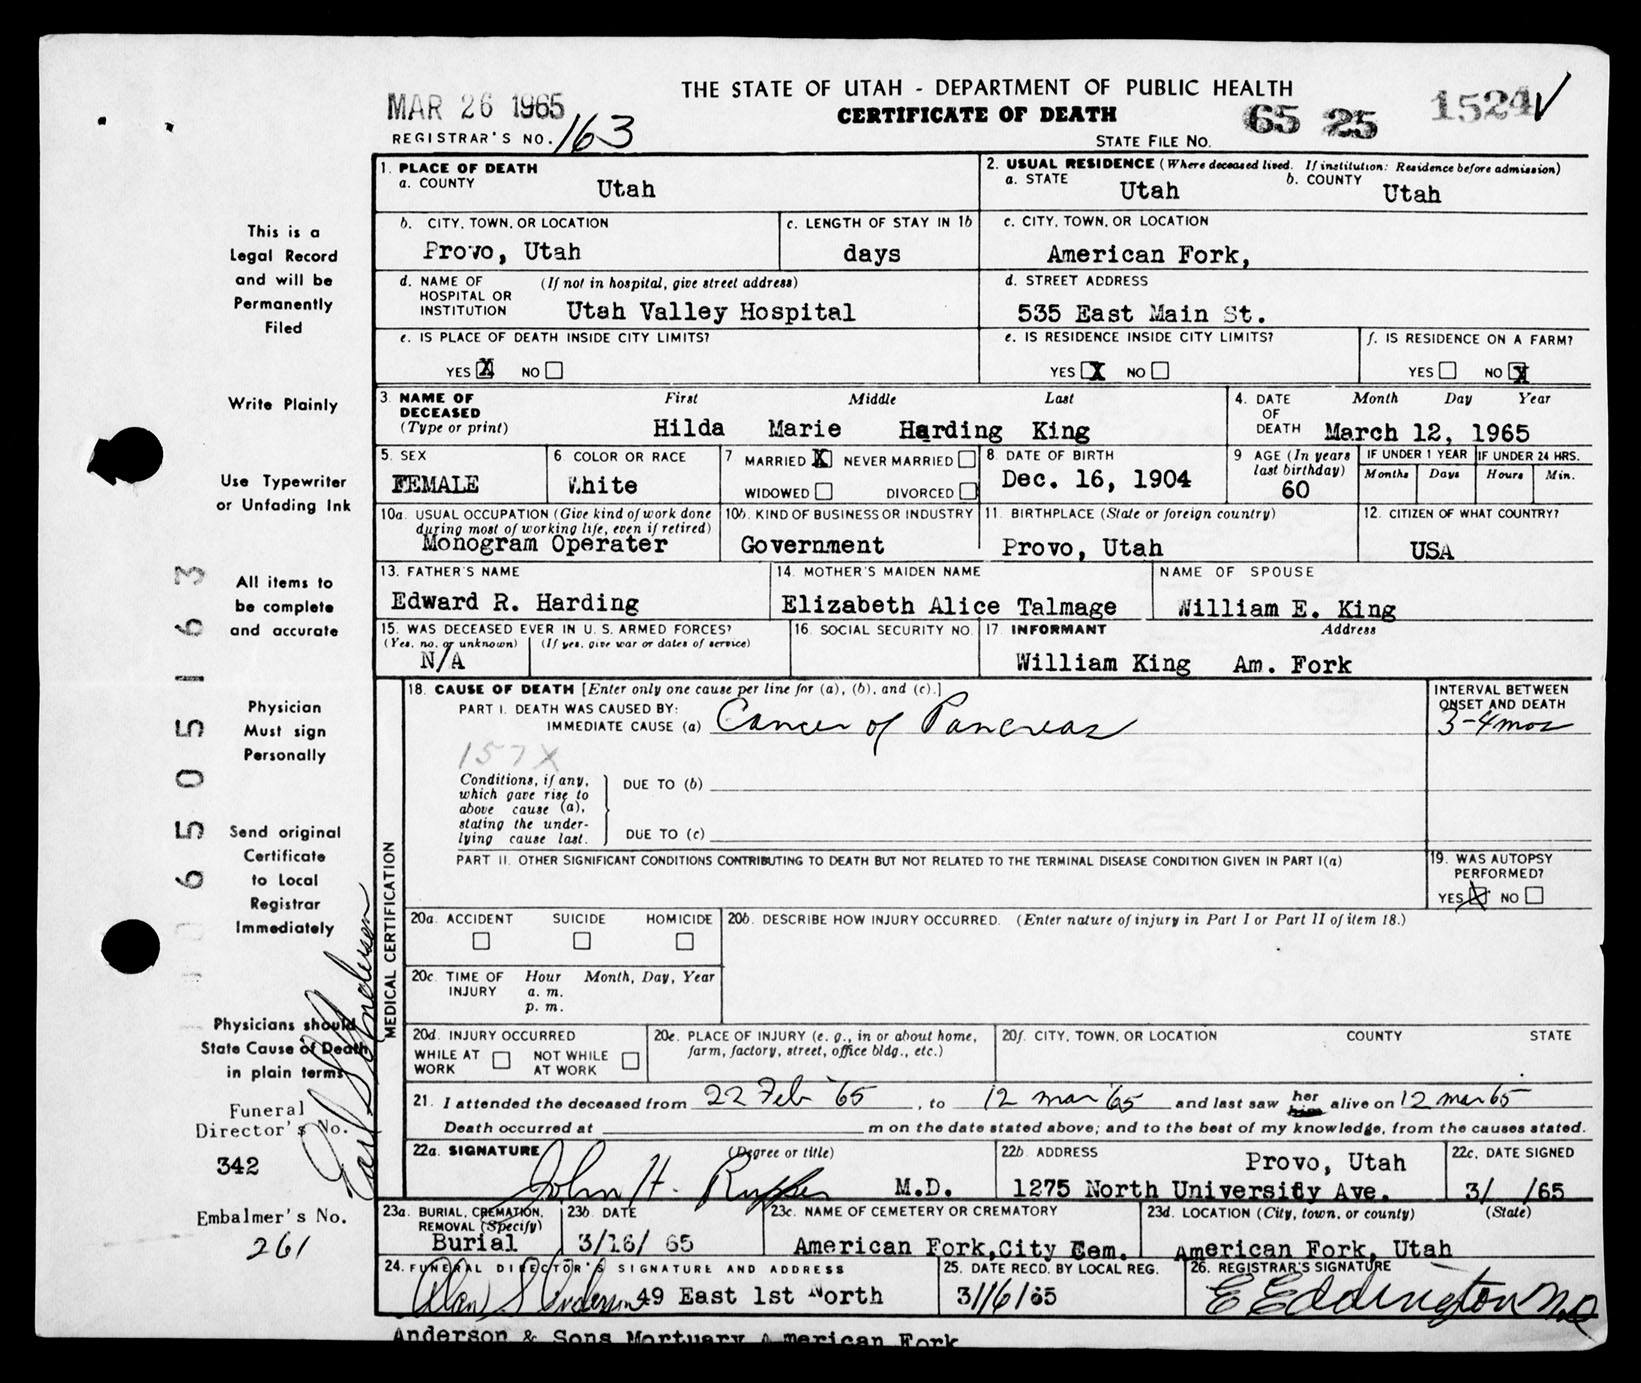 THE STATE OF UTAH - DEPARTMENT OF PUBLIC HEALTH
CERTIFICATE OF DEATH
MAR 26 1965
REGISTRAR'S NO. 163
STATE FILE NO. 65 25 1524
This is a
Legal Record
and will be
Permanently
Filed
Write Plainly
Use Typewriter
or Unfading Ink
All items to
be complete
and accurate
Physician
Must sign
Personally
Send original
Certificate
to Local
Registrar
Immediately
Physicians should
State Cause of Death
in plain terms
Funeral
Director's No.
342
Embalmer's No.
261
Earl S Anderson
065050163
1. PLACE OF DEATH
a. COUNTY Utah
2. USUAL RESIDENCE (Where deceased lived. If institution: Residence before admission)
a. STATE Utah b. COUNTY Utah
b. CITY, TOWN, OR LOCATION
Provo, Utah
c. LENGTH OF STAY IN 1b
days
c. CITY, TOWN, OR LOCATION
American Fork,
d. NAME OF HOSPITAL OR INSTITUTION (If not in hospital, give street address)
Utah Valley Hospital
d. STREET ADDRESS
535 East Main St.
e. IS PLACE OF DEATH INSIDE CITY LIMITS?
YES X NO
e. IS RESIDENCE INSIDE CITY LIMITS?
YES X NO
f. IS RESIDENCE ON A FARM?
YES NO X
3. NAME OF DECEASED (Type or print)
First Middle Last
Hilda Marie Harding King
4. DATE OF DEATH Month Day Year
March 12, 1965
5. SEX
FEMALE
6. COLOR OR RACE
White
7 MARRIED X NEVER MARRIED
WIDOWED DIVORCED
8. DATE OF BIRTH
Dec. 16, 1904
9 AGE (In years last birthday)
60
IF UNDER 1 YEAR
Months Days
IF UNDER 24 HRS.
Hours Min.
10a. USUAL OCCUPATION (Give kind of work done during most of working life, even if retired)
Monogram Operater
10b. KIND OF BUSINESS OR INDUSTRY
Government
11. BIRTHPLACE (State or foreign country)
Provo, Utah
12. CITIZEN OF WHAT COUNTRY?
USA
13. FATHER'S NAME
Edward R. Harding
14. MOTHER'S MAIDEN NAME
Elizabeth Alice Talmage
NAME OF SPOUSE
William E. King
15. WAS DECEASED EVER IN U. S. ARMED FORCES?
(Yes, no, or unknown) (If yes, give war or dates of service)
N/A
16. SOCIAL SECURITY NO.
17. INFORMANT Address
William King Am. Fork
MEDICAL CERTIFICATION
18. CAUSE OF DEATH [Enter only one cause per line for (a), (b), and (c).]
PART I. DEATH WAS CAUSED BY:
IMMEDIATE CAUSE (a) Cancer of Pancreas
INTERVAL BETWEEN ONSET AND DEATH
3-4 mos
157X
Conditions, if any, which gave rise to above cause (a), stating the underlying cause last.
DUE TO (b)
DUE TO (c)
PART II. OTHER SIGNIFICANT CONDITIONS CONTRIBUTING TO DEATH BUT NOT RELATED TO THE TERMINAL DISEASE CONDITION GIVEN IN PART I(a)
19. WAS AUTOPSY PERFORMED?
YES X NO
20a. ACCIDENT SUICIDE HOMICIDE
20b. DESCRIBE HOW INJURY OCCURRED. (Enter nature of injury in Part I or Part II of item 18.)
20c. TIME OF INJURY Hour Month, Day, Year
a. m.
p. m.
20d. INJURY OCCURRED
WHILE AT WORK NOT WHILE AT WORK
20e. PLACE OF INJURY (e. g., in or about home, farm, factory, street, office bldg., etc.)
20f. CITY, TOWN, OR LOCATION COUNTY STATE
21. I attended the deceased from 22 Feb '65, to 12 mar '65 and last saw her him alive on 12 mar 65
Death occurred at m on the date stated above; and to the best of my knowledge, from the causes stated.
22a. SIGNATURE (Degree or title)
John H. Rupper M.D.
22b. ADDRESS
Provo, Utah
1275 North University Ave.
22c. DATE SIGNED
3/ /65
23a. BURIAL, CREMATION, REMOVAL (Specify)
Burial
23b. DATE
3/16/ 65
23c. NAME OF CEMETERY OR CREMATORY
American Fork,City Cem.
23d. LOCATION (City, town, or county) (State)
American Fork, Utah
24. FUNERAL DIRECTOR'S SIGNATURE AND ADDRESS
Alan S Anderson 49 East 1st North
25. DATE RECD. BY LOCAL REG.
3/16/65
26. REGISTRAR'S SIGNATURE
E Eddington MD
Anderson & Sons Mortuary American Fork